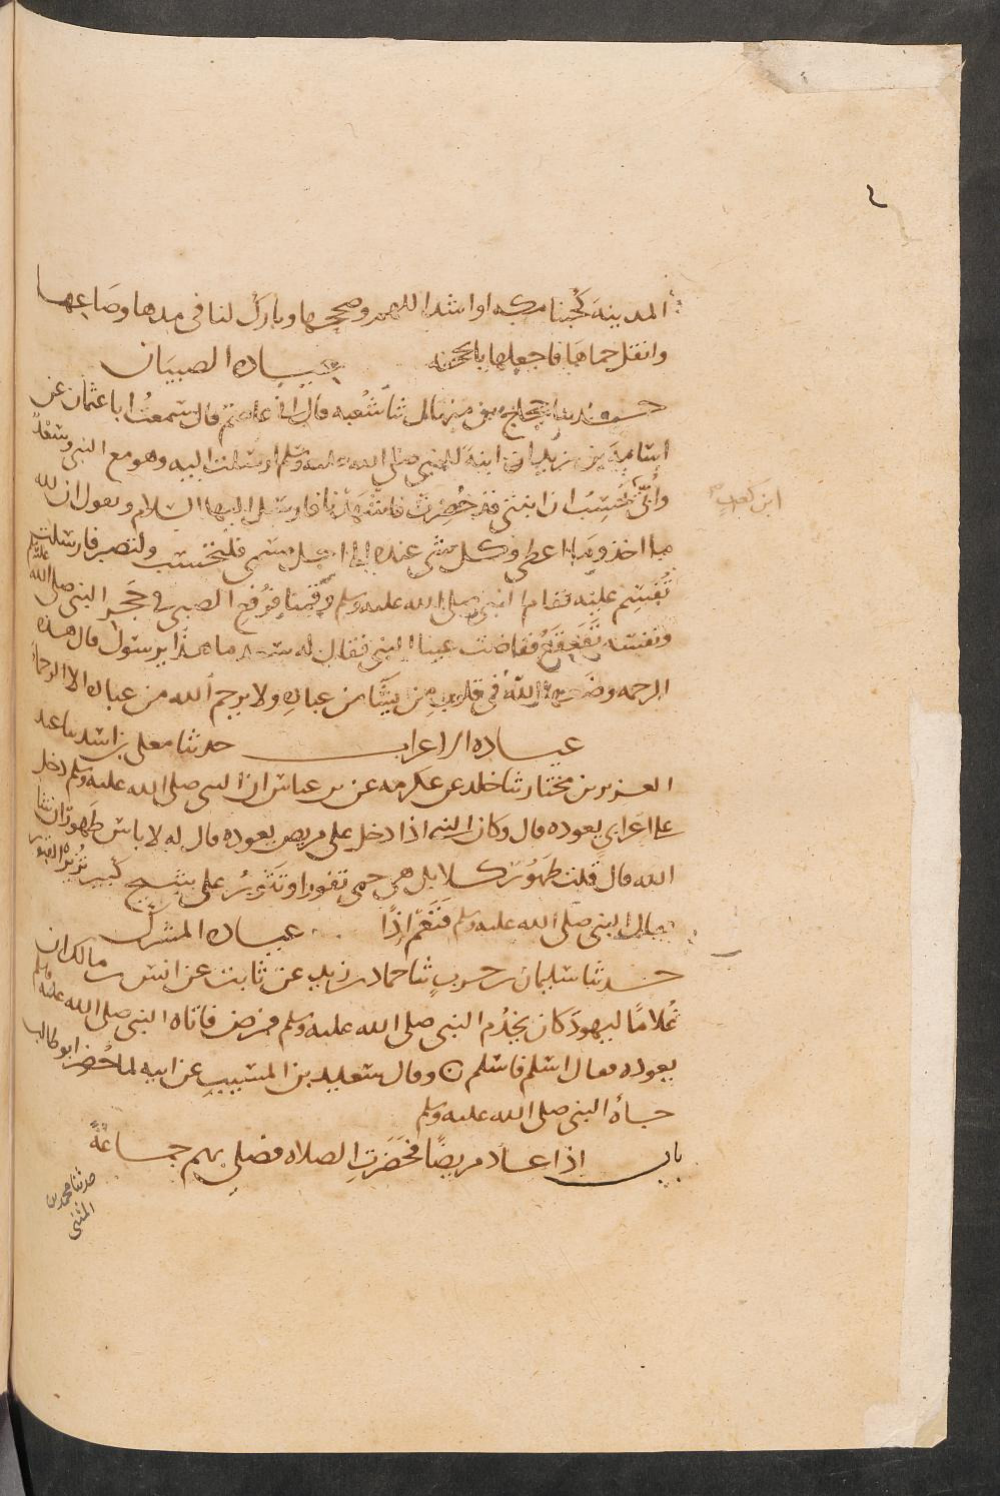 ٤
المدينة كحبنا مكه او اشد اللهم وصححها وبارك لنا في مدها وصاعها
وانقل حماها فاجعلها بالجحفه عيادة الصبيان
حدثنا حجاج بن منهال ثنا شعبه قال اني عاصم قال سمعت ابا عثمان عن
اسامة بن زيد ان ابنة للنبي صلى الله عليه وسلم ارسلت اليه وهو مع النبي وسعد
وأُبيّ نحسب ان ابنتي قد حُضِرت فاشهدنا فارسل اليها السلام ويقول ان لله
ابن كعب
ما اخذ وما اعطى وكل شي عنده الى اجل مسمى فلتحتسب ولتصبر فارسلت
تُقسم عليه فقام النبي صلى الله عليه وسلم وقمنا فرُفع الصبي في حَجر النبي صلى الله عليه وسلم
ونفسه تَقَعقَعُ ففاضت عينا النبي فقال له سعد ما هذا يرسول قال هذه
الرحمه وضعها اللهُ في قلوب من يشآ من عباده ولا يرحم الله من عباده الا الرحماء
عيادة الاعراب حدثنا معلى بن اسد ثنا عبد
العزيز بن مختار ثنا خلد عن عكرمه عن بن عباس ان النبي صلى الله عليه وسلم دخل
على اعرابي يعوده قال وكان النبي اذا دخل على مريض يعوده قال له لا باس طَهورٌ ان شا
الله قال قلت طهورٌ كلا بل هي حمى تفور او تَثُورُ على شيخ كبير تُزيرُه القبور
فقال النبي صلى الله عليه وسلم فَنَعَم اذًا عيادة المشرك
حدثنا سليمان بن حربٍ ثنا حماد بن زيد عن ثابت عن انس بن مالك ان
غُلامًا ليهودَ كان يخدُم النبي صلى الله عليه وسلم فمرض فاتاه النبي صلى الله عليه وسلم
يعوده فقال اسلم فاسلم ن وقال سعيد بن المسيبِ عن ابيه لما حُضر ابو طالب
جاءهُ النبي صلى الله عليه وسلم
باب اذا عاد مريضًا فحَضَرَتِ الصلاه فصلى بهم جماعةً
حدثنا محمد بن
المثنى